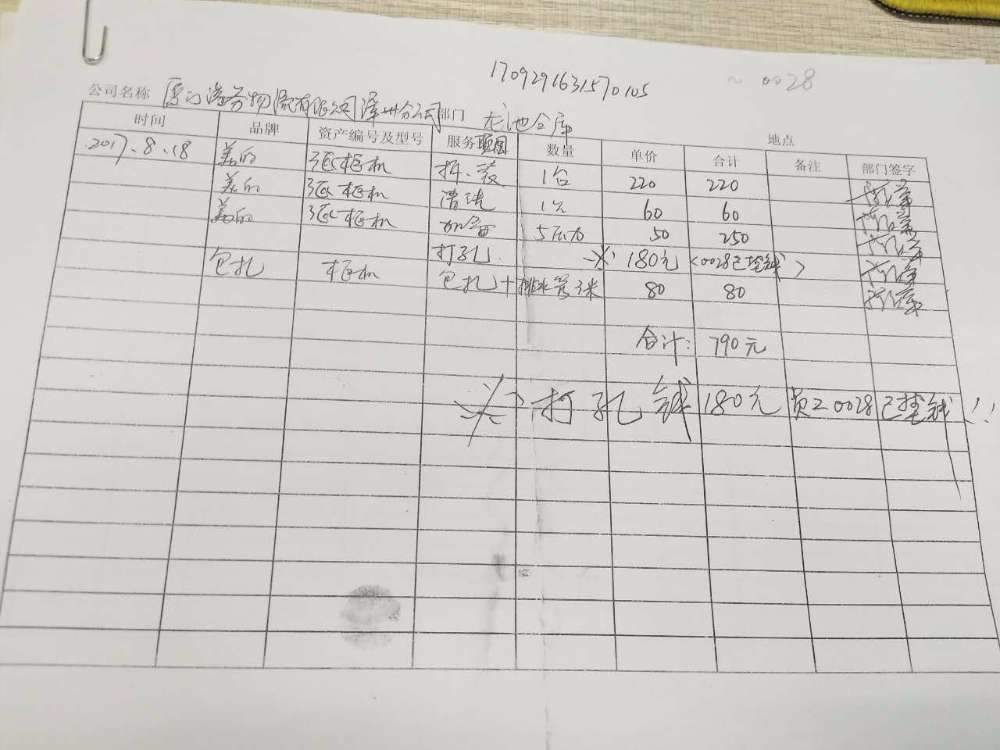 1709291631570105 ~ 0028
公司名称 厦门 物流有限公司漳州分公司 部门 龙池仓库 地点
时间 品牌 资产编号及型号 服务项目 数量 单价 合计 备注 部门签字
2017.8.18 美的 3匹柜机 拆.装 1台 220 220
美的 3匹柜机 清洗 1台 60 60
美的 3匹柜机 加氟 5压力 50 250
打孔 ※ 180元 <0028已垫钱>
包扎 柜机 包扎+排水管3米 80 80
合计: 790元
※: 打孔钱180元 员工0028已垫钱!!